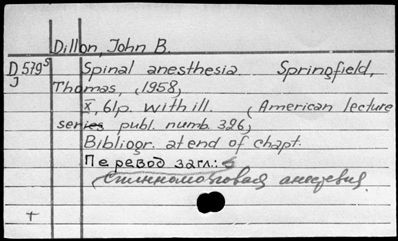 Dillon, John B.
D 5795 Spinal anesthesia. Springfield,
J Thomas, (1958)
X, 61p. with ill. (American lecture
series publ. numb. 326)
Bibliogr. at end of chapt.
Перевод загл.:
Спинномозговая анестезия.
т